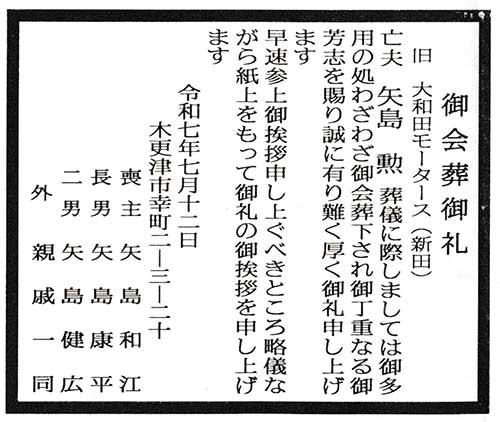 御会葬御礼
旧 大和田モータース（新田）
亡夫 矢島 勲 葬儀に際しましては御多
用の処わざわざ御会葬下され御丁重なる御
芳志を賜り誠に有り難く厚く御礼申し上げ
ます
早速参上御挨拶申し上ぐべきところ略儀な
がら紙上をもって御礼の御挨拶を申し上げ
ます
令和七年七月十二日
木更津市幸町二―三―二十
喪主 矢島和江
長男 矢島康平
二男 矢島健広
外 親戚一同